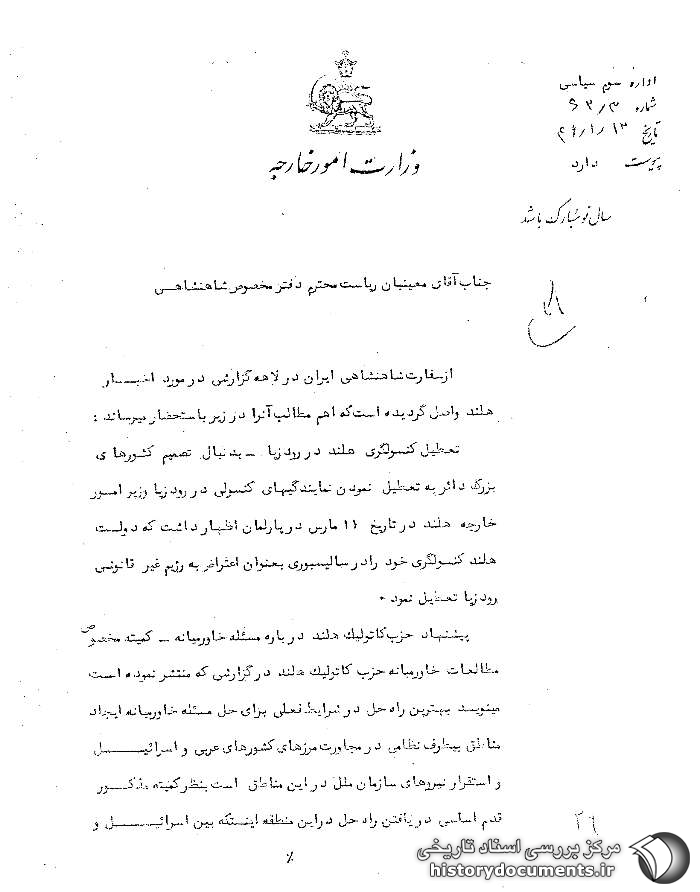 اداره سوم سیاسی
شماره
تاریخ ۴۹/۱/۱۳
پیوست دارد
وزارت امور خارجه
سال نو مبارک باشد
جناب آقای معینیان ریاست محترم دفتر مخصوص شاهنشاهی
از سفارت شاهنشاهی ایران در لاهه گزارشی در مورد اخبار
هلند واصل گردیده است که اهم مطالب آنرا در زیر باستحضار میرساند :
تعطیل کنسولگری هلند در رودزیا ـ بدنبال تصمیم کشورهای
بزرگ دائر به تعطیل نمودن نمایندگیهای کنسولی در رودزیا وزیر امور
خارجه هلند در تاریخ ۱۱ مارس در پارلمان اظهار داشت که دولت
هلند کنسولگری خود را در سالیسبوری بعنوان اعتراض به رژیم غیر قانونی
رودزیا تعطیل نمود ۰
پیشنهاد حزب کاتولیک هلند درباره مسئله خاورمیانه ـ کمیته مخصوص
مطالعات خاورمیانه حزب کاتولیک هلند در گزارشی که منتشر نموده است
مینویسد بهترین راه حل در شرایط فعلی برای حل مسئله خاورمیانه ایجاد
مناطق بیطرف نظامی در مجاورت مرزهای کشورهای عربی و اسرائیل
و استقرار نیروهای سازمان ملل در این مناطق است بنظر کمیته مذکور
قدم اساسی در یافتن راه حل در این منطقه اینستکه بین اسرائیل و
۲۶
٪
مرکز بررسی اسناد تاریخی
historydocuments.ir